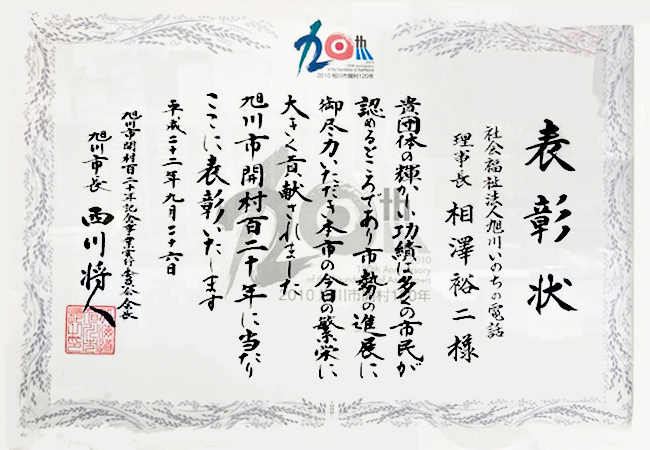 120th
120th Anniversary
of the foundation of Asahikawa
2010 旭川市開村120年
表彰状
社会福祉法人旭川いのちの電話
理事長 相澤裕二様
貴団体の輝かしい功績は多くの市民が
認めるところであり市勢の進展に
御尽力いただき本市の今日の繁栄に
大きく貢献されました
旭川市開村百二十年に当たり
ここに表彰いたします
平成二十二年九月二十六日
旭川市開村百二十年記念事業実行委員会会長
旭川市長 西川将人